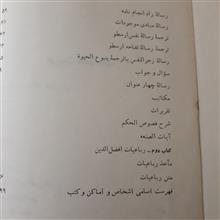 رسالهٔ راه انجام نامه ۵۹
رسالهٔ مبادی موجودات
ترجمهٔ رسالهٔ نفس ارسطو
ترجمهٔ رسالهٔ تفاحه ارسطو
رسالهٔ زجرالنفس یا ترجمهٔ ینبوع الحیوة
سؤال و جواب
رسالهٔ چهار عنوان
مکاتیب
تقریرات
شرح فصوص الحکم
آیات الصنعه
کتاب دوم ـ رباعیات افضل‌الدین
مآخذ رباعیات
متن رباعیات
فهرست اسامی اشخاص و اماکن و کتب ۹۹